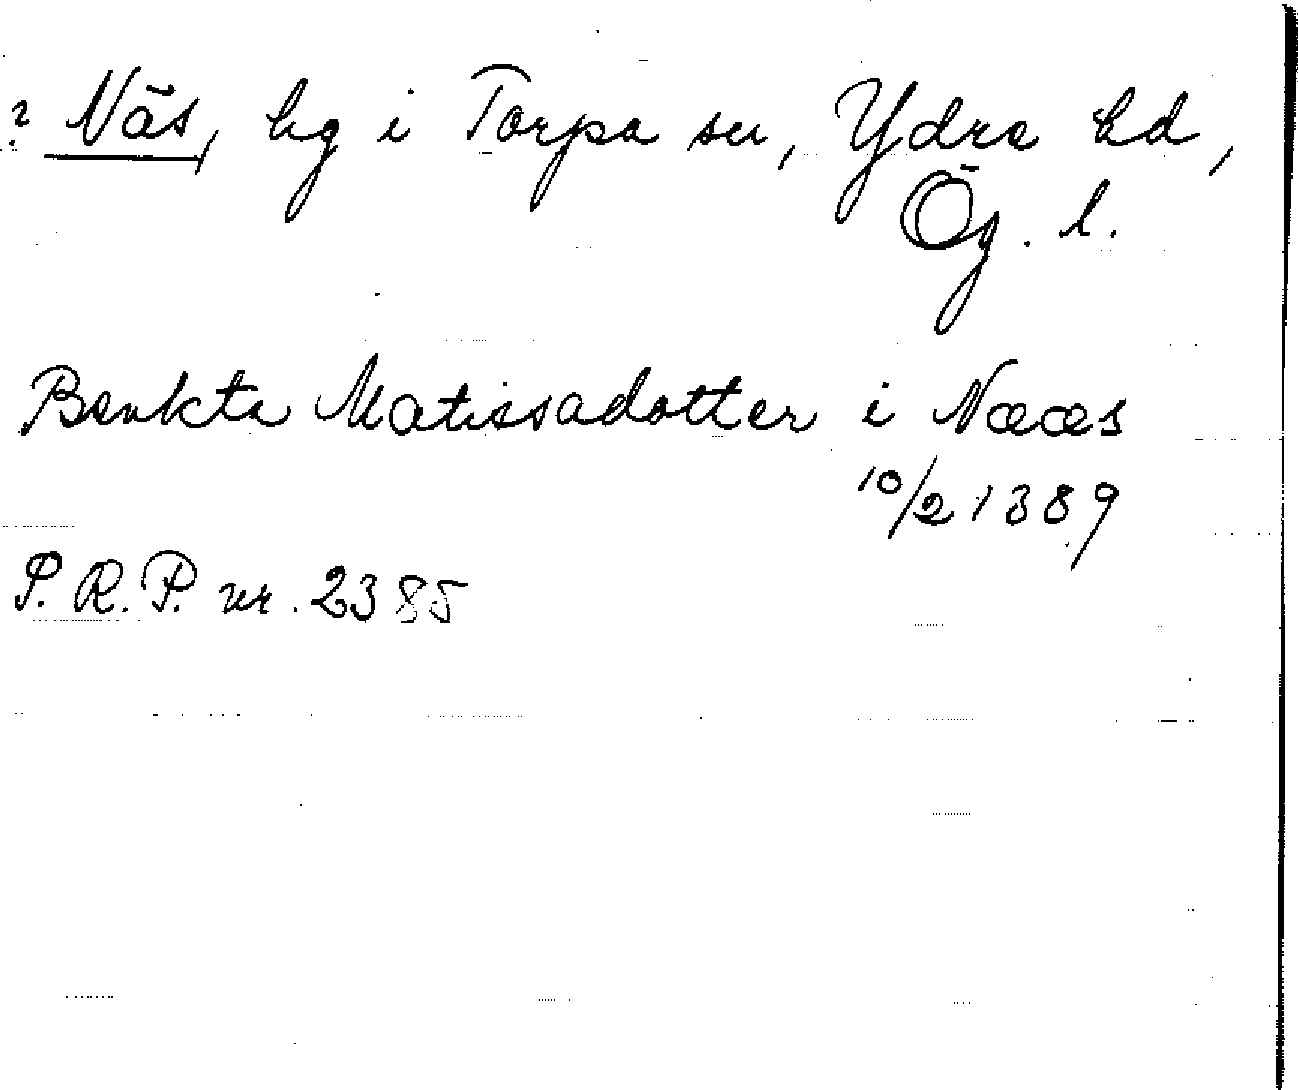 ? Näs, hg i Torpa sn, Ydre hd,
Ög. l.
Benkta Matissadotter i Nææs
10/2 1389
P. R. P. nr. 2385